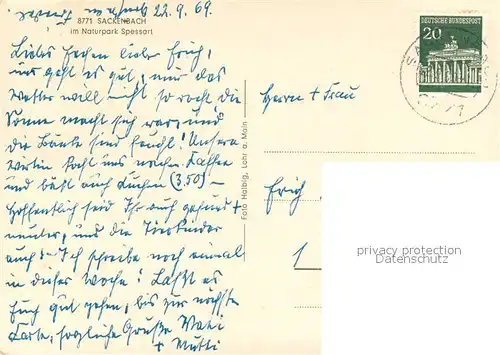 22.9.69
8771 SACKENBACH
im Naturpark Spessart
Liebes Lenchen lieber Erich,
uns geht es gut, nur das
Wetter will nicht so recht die
Sonne macht sich rar, und
die Bänke sind feucht! Unsere
Wirtin kocht uns nachm. Kaffee
und bäckt auch Kuchen (3,50) –
hoffentlich seid Ihr auch gesund +
munter, und die
auch? – Ich schreibe noch einmal
in dieser Woche! Laßt es
Euch gut gehen, bis zur nächsten
Karte, herzliche Grüße Vati
+ Mutti
Foto Halbig, Lohr a. Main
DEUTSCHE BUNDESPOST
20
Herrn + Frau
Erich,
privacy protection
Datenschutz